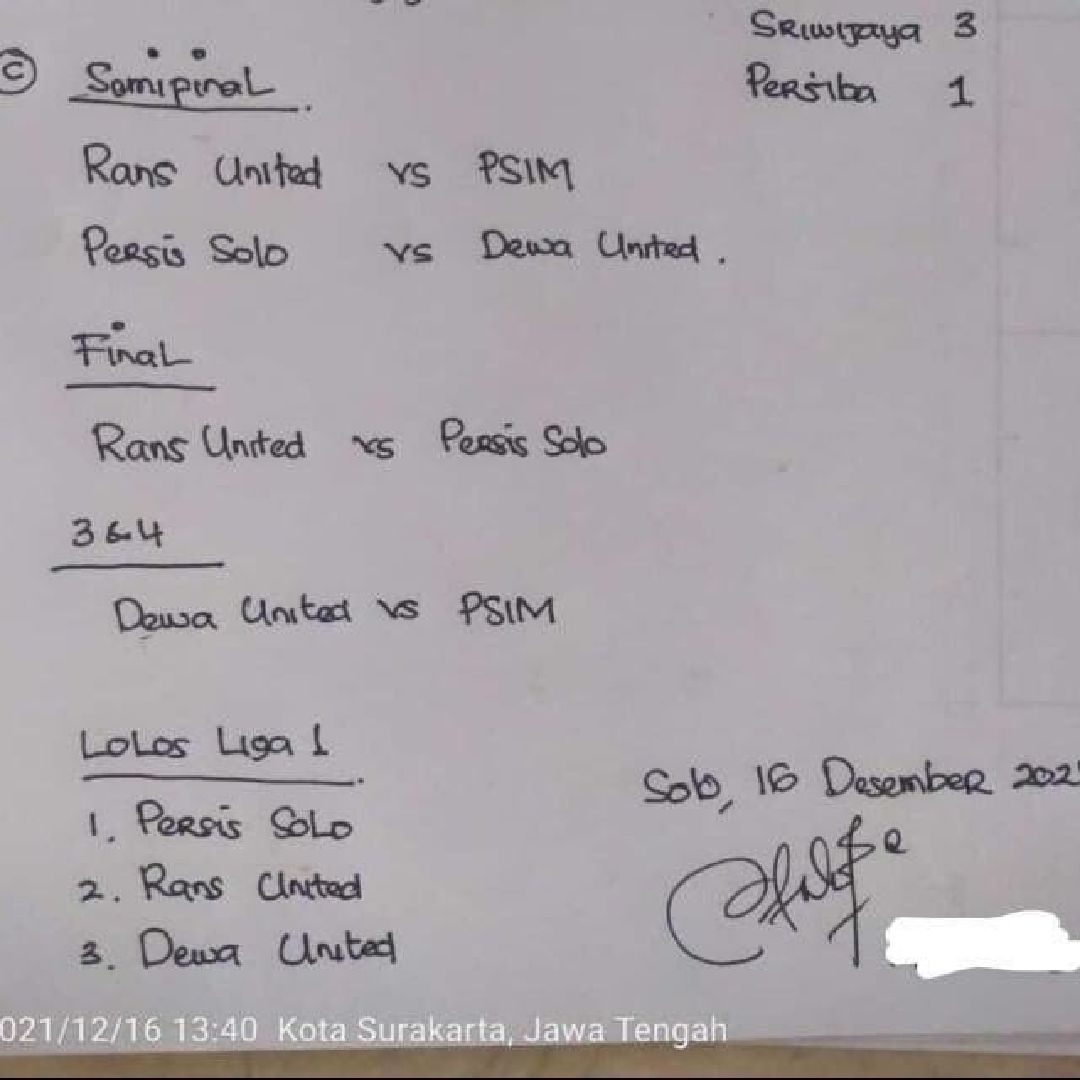 Sriwijaya 3
Persiba 1
C Semipinal.
Rans United vs PSIM
Persis Solo vs Dewa United.
Final
Rans United vs Persis Solo
3 & 4
Dewa United vs PSIM
Lolos Liga 1
1. Persis Solo
2. Rans United
3. Dewa United
Solo, 16 Desember 202
021/12/16 13:40 Kota Surakarta, Jawa Tengah